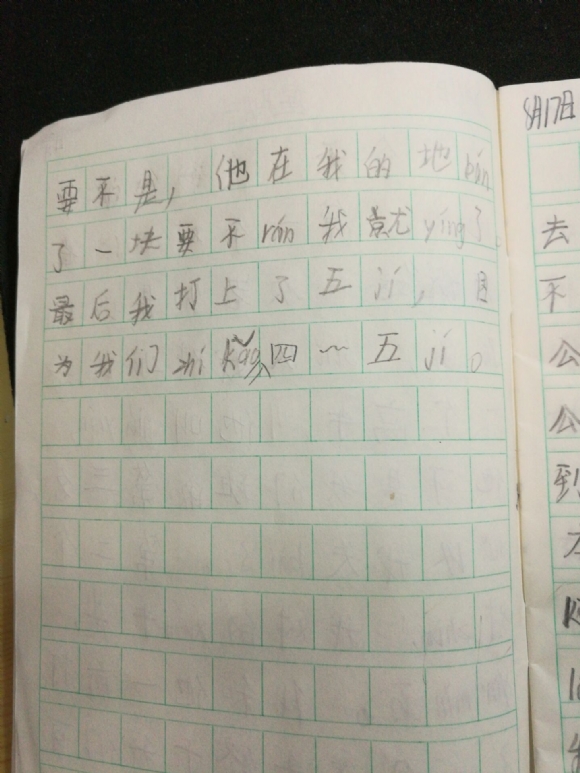 要不是,他在我的地bán
了一块要不rán我就yíng了。
最后我打上了五jí,因
为我们zhǐ kǎo四~五jí。
8月17日
去
不
公
公
到